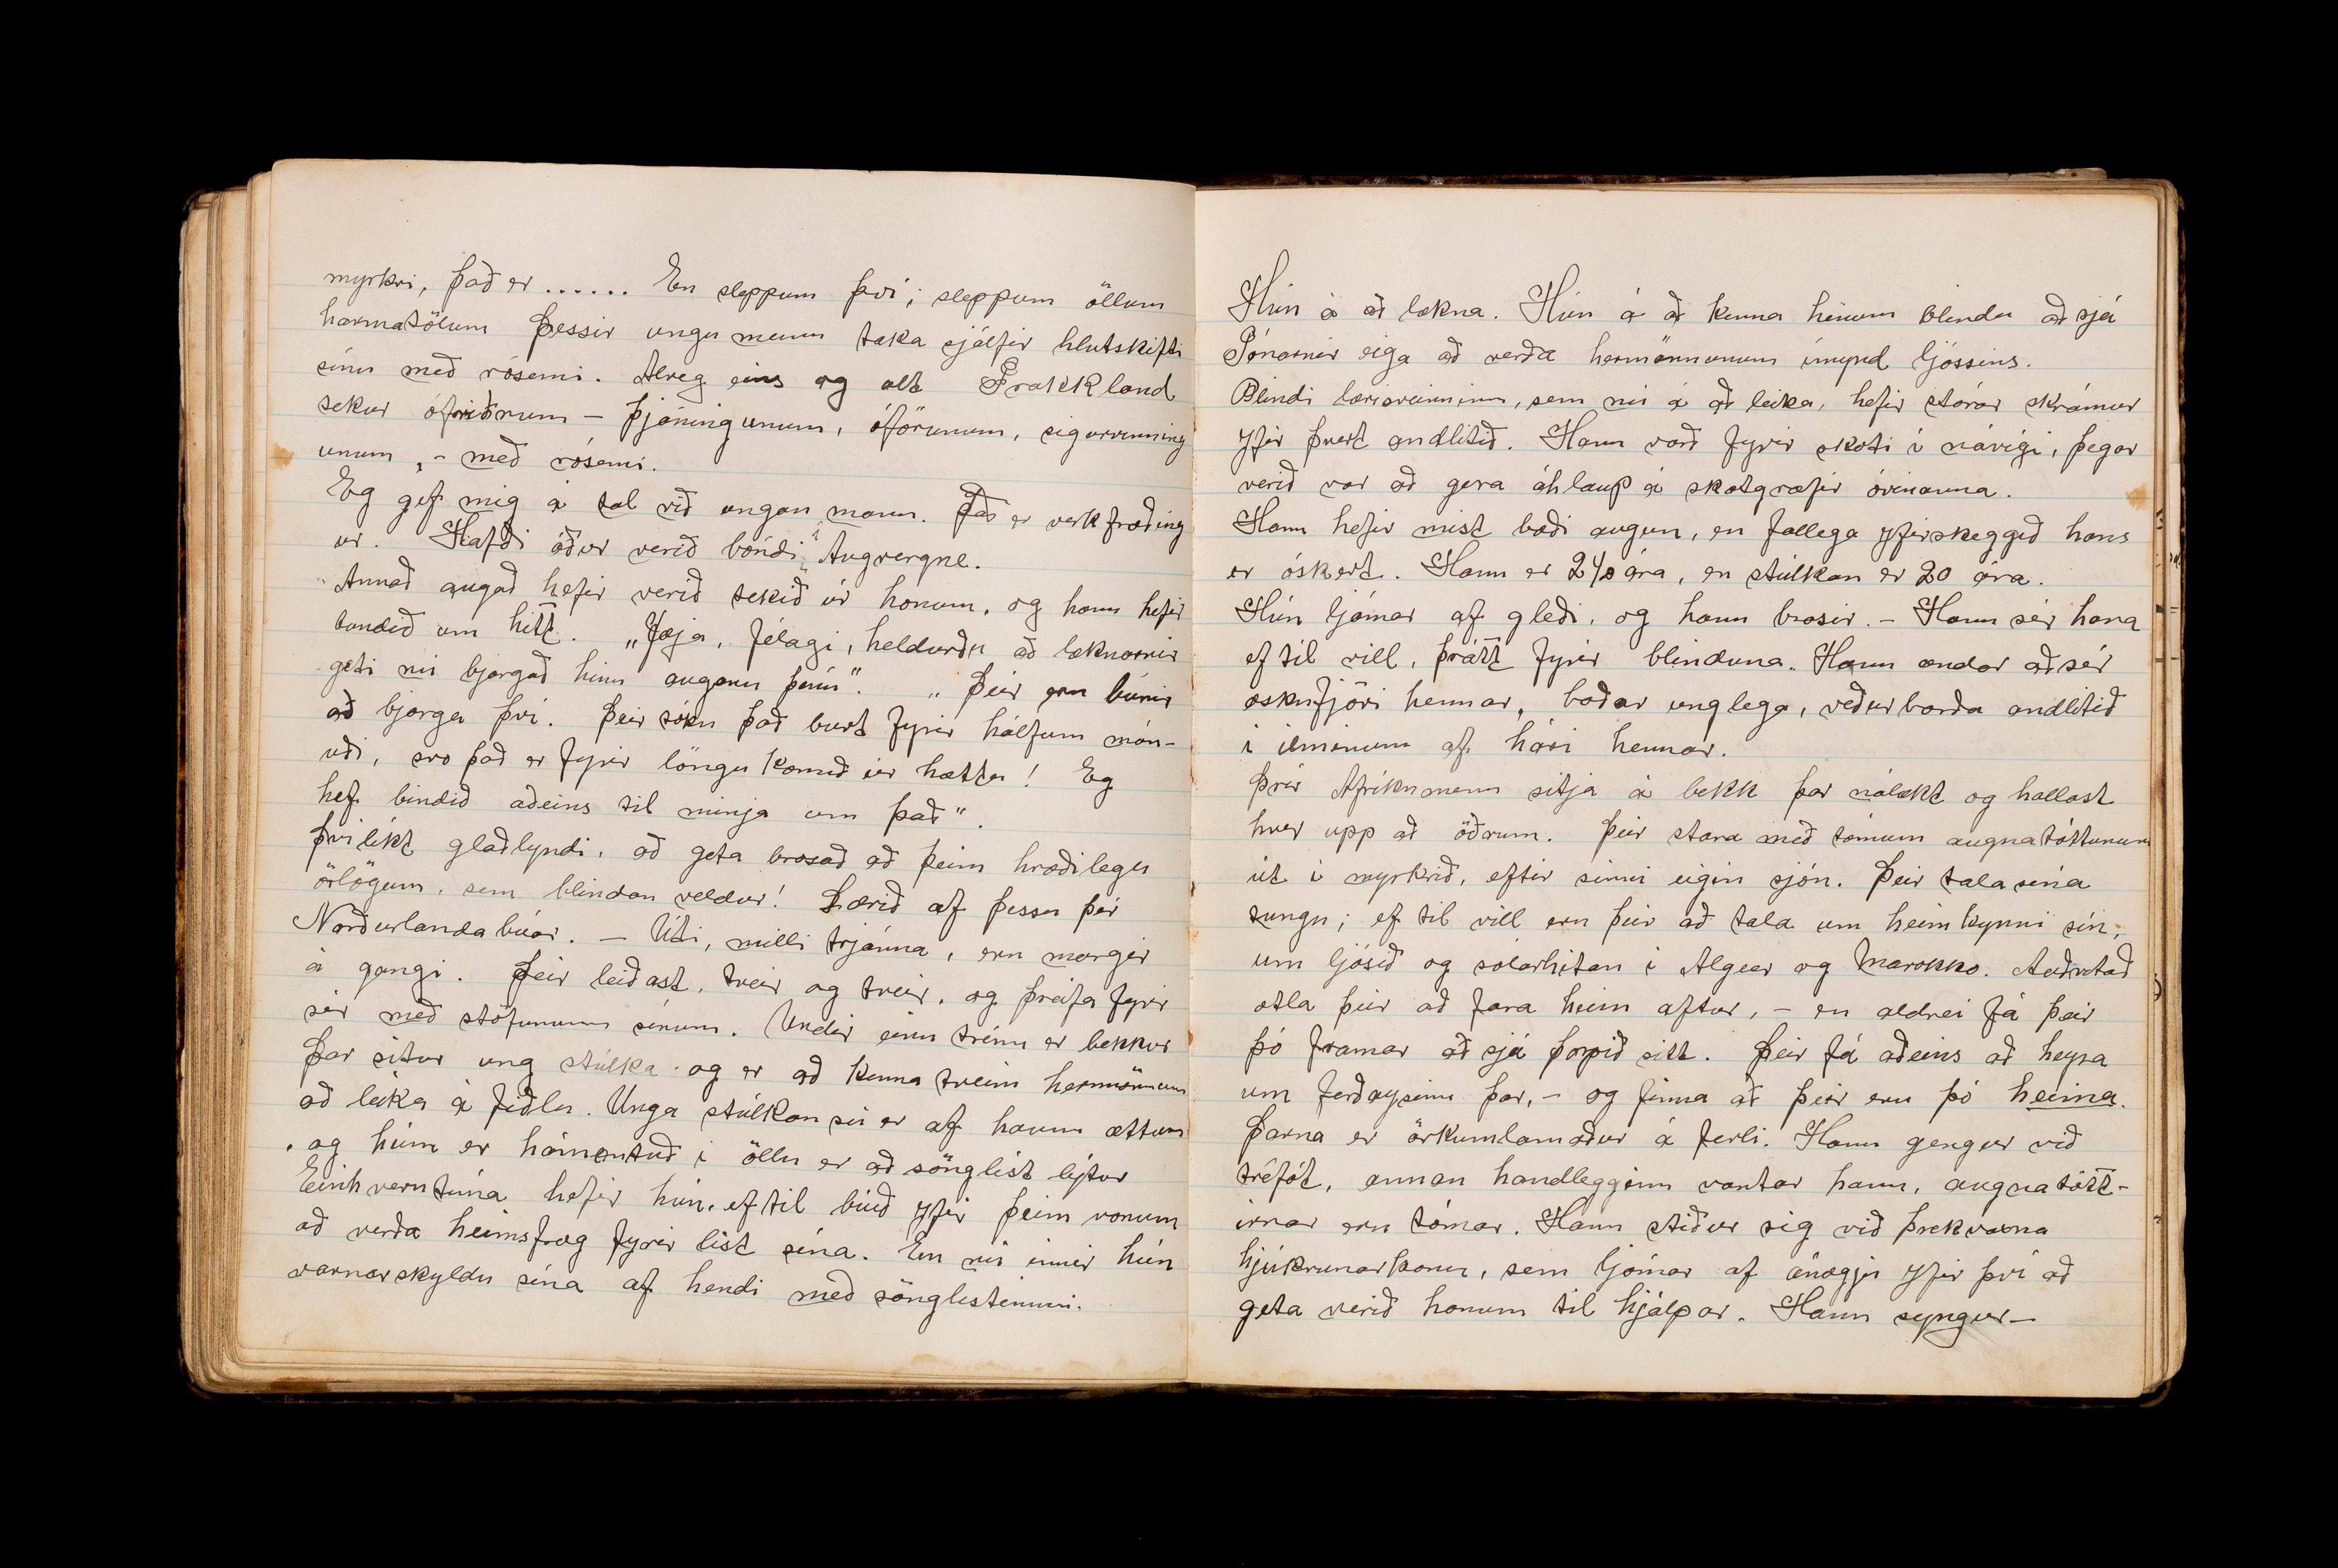 myrkri, það er ...... En sleppum því; sleppum öllum
harmatölum Þessir ungu menn taka sjálfir hlutskifti
sínu með rósemi. Alveg eins og alt Frakkland
tekur ófriðnum - þjáningunum, óförunum, sigurvinning
unum, - með rósemi.
Eg gef mig á tal við ungan mann. Það er verkfræðing
ur. Hafði áður verið bóndi í Augvergne.
Annað augað hefir verið tekið úr honum, og hann hefir
bundið um hitt. „Jæja, félagi, heldurðu að læknarnir
geti nú bjargað hinu auganu þínu“. „Þeir eru búnir
að bjarga því. Þeir tóku það burt fyrir hálfum mán-
uði, svo það er fyrir löngu komið úr hættu! Eg
hef bindið aðeins til minja um það“.
Þvílíkt glaðlyndi, að geta brosað að þeim hræðilegu
örlögum, sem blindan veldur! Lærið af þessu þér
Norðurlandabúar. - Úti, milli trjánna, eru margir
á gangi. Þeir leiðast, tveir og tveir, og þreifa fyrir
sér með stöfunum sínum. Undir einu trénu er bekkur
Þar situr ung stúlka og er að kenna tveim hermönnum
að leika á fiðlu. Unga stúlkan sú er af háum ættum
, og hún er hámentuð í öllu er að sönglist lýtur
Einhverntíma hefir hún, ef til búið yfir þeim vonum
að verða heimsfræg fyrir list sína. En nú innir hún
varnarskyldu sína af hendi með sönglistinni.
Hún á að lækna. Hún á að kenna hinum blindu að sjá
Tónarnir eiga að verða hermönnunum ímynd ljóssins.
Blindi lærisveinninn, sem nú á að leika, hefir stórar skrámur
yfir þvert andlitið. Hann varð fyrir skoti í návígi, þegar
verið var að gera áhlaup á skotgrafir óvinanna.
Hann hefir mist bæði augun, en fallega yfirskeggið hans
er óskert. Hann er 24 ára, en stúlkan er 20 ára.
Hún ljómar af gleði, og hann brosir. - Hann sér hana
ef til vill, þrátt fyrir blinduna. Hann andar að sér
æskufjöri hennar, baðar unglega, veðurbarða andlitið
í ilminum af hári hennar.
Þrír Afríkumenn sitja á bekk þar nálægt og hallast
hver upp að öðrum. Þeir stara með tómum augnatóttunum
út í myrkrið, eftir sinni eigin sjón. Þeir tala sína
tungu; ef til vill eru þeir að tala um heimkynni sín,
um ljósið og sólarhitan í Algeer og Marokko. Auðvitað
ætla þeir að fara heim aftur, - en aldrei fá þeir
þó framar að sjá þorpið sitt. Þeir fá aðeins að heyra
um ferðaysinn þar, - og finna að þeir eru þó heima.
Þarna er örkumlamaður á ferli. Hann gengur við
tréfót, annan handlegginn vantar hann, augnatótt-
irnar eru tómar. Hann stiður sig við þrekvaxna
hjúkrunarkonu, sem ljómar af ánægju yfir því að
geta verið honum til hjálpar. Hann syngur-